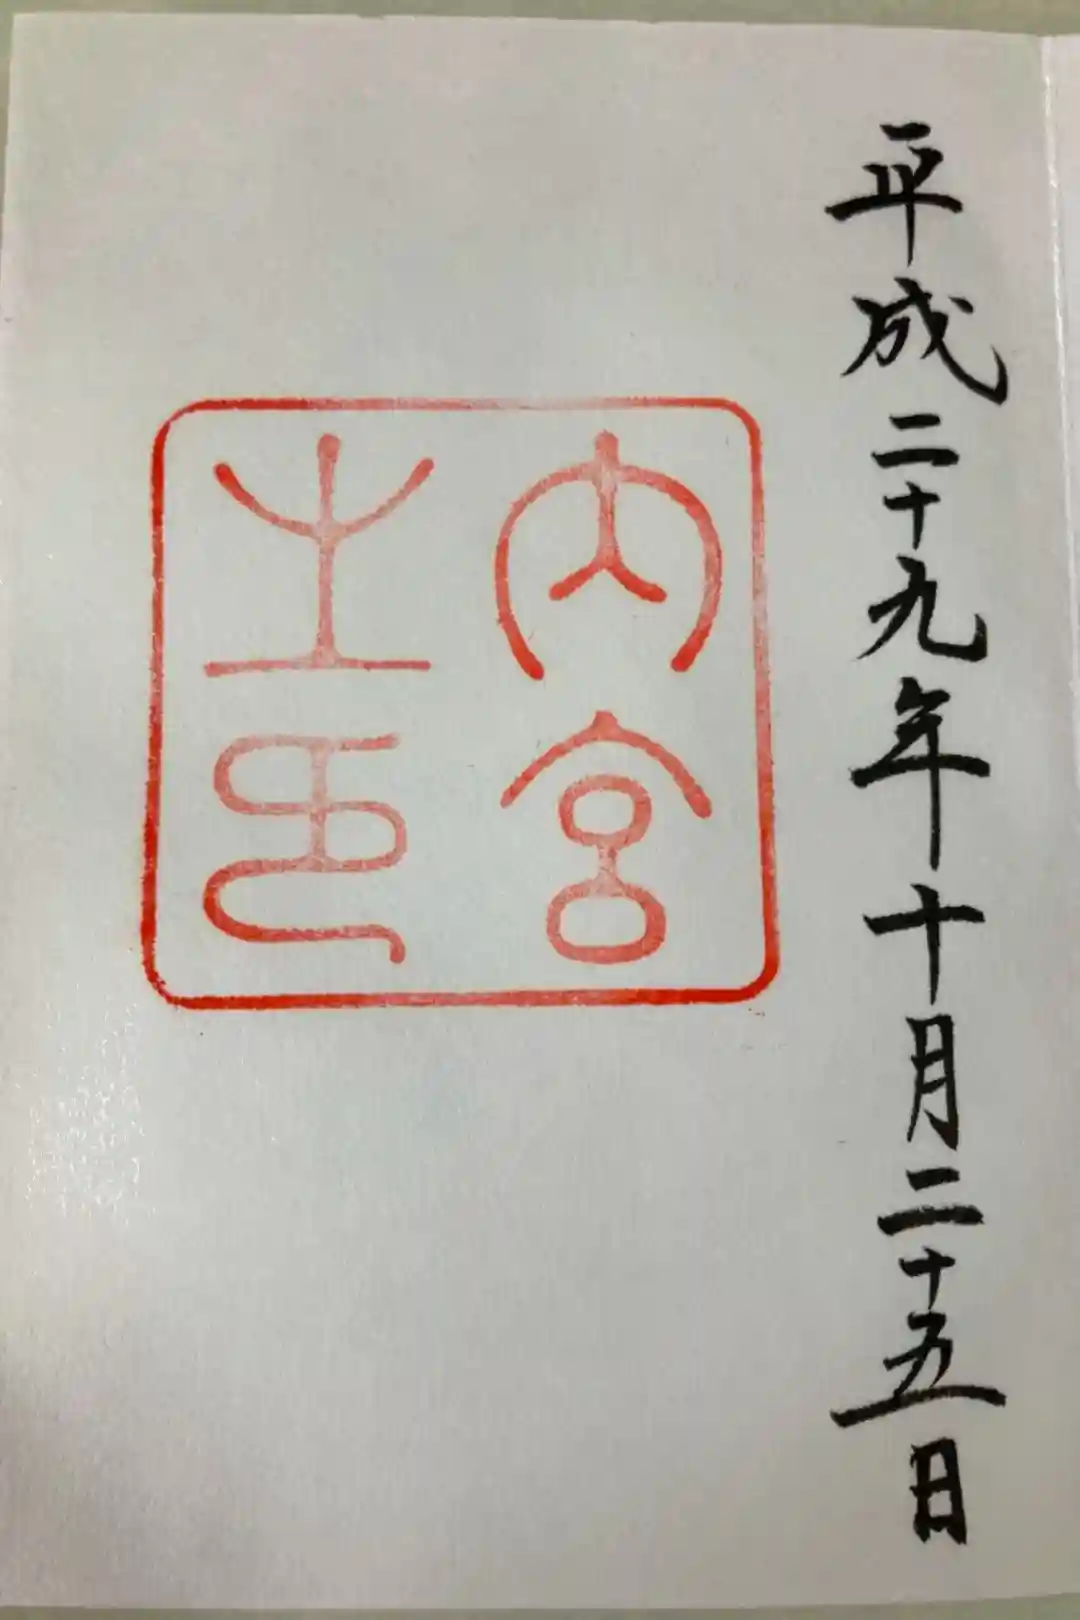 平成二十九年十月二十五日
内宮
之印